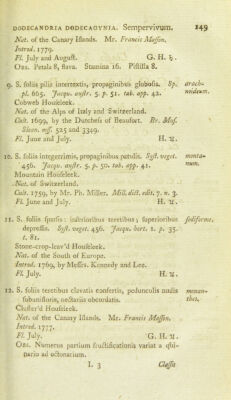 DODECANDRIA DODECAGYNIA. Sempervivum. 149
Nat. of the Canary Islands. Mr. Francis Masson.
Introd. 1779.
Fl. July and August. G. H. ♄.
OBS. Petala 8, flava. Stamina 16. Pistilla 8.
9. S. foliis pilis intertextis, propaginibus globosis. Sp. arach-
pl. 665. Jacqu. austr. 5. p. 51. tab. app. 42. noideum.
Cobweb Houseleek.
Nat. of the Alps of Italy and Switzerland.
Cult. 1699, by the Dutchess of Beaufort. Br. Mus.
Sloan. mss. 525 and 3349.
Fl. June and July. H. ♃.
10. S. foliis integerrimis, propaginibus patulis. Syst. veget. monta-
456. Jacqu. austr. 5. p. 50. tab. app. 41. num.
Mountain Houseleek.
Nat. of Switzerland.
Cult. 1759, by Mr. Ph. Miller. Mill. dict. edit. 7. n. 3.
Fl. June and July. H. ♃.
11. S. foliis sparsis: inferioribus teretibus; superioribus sediforme.
depressis. Syst. veget. 456. Jacqu. hort. 1. p. 35.
t. 81.
Stone-crop-leav'd Houseleek.
Nat. of the South of Europe.
Introd. 1769, by Messrs. Kennedy and Lee.
Fl. July. H. ♃.
12. S. foliis teretibus clavatis confertis, pedunculis nudis monan-
subunifloris, nectariis obcordatis. thes.
Cluster'd Houseleek.
Nat. of the Canary Islands. Mr. Francis Masson.
Introd. 1777.
Fl. July. G. H. ♃.
OBS. Numerus partium fructificationis variat a qui-
nario ad octonarium.
L 3 Classis